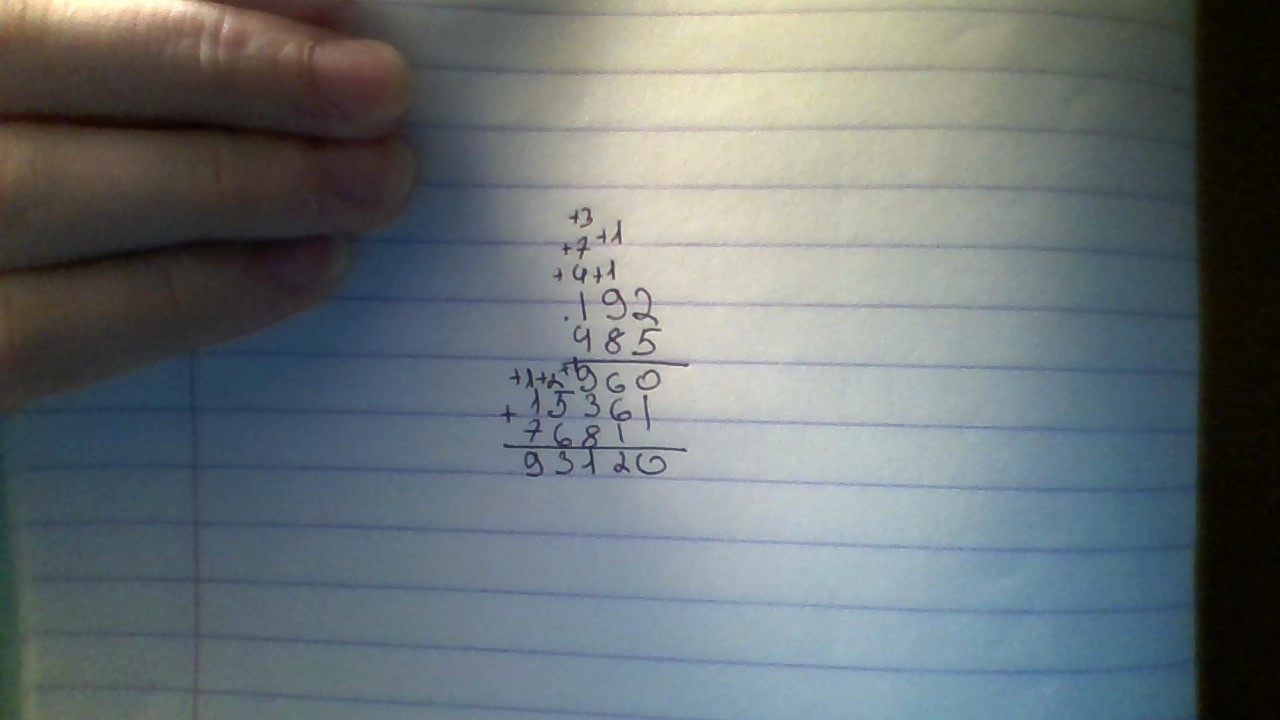 +3
+7 +1
+4 +1
. 1 9 2
4 8 5
+1 +2 +1 9 6 0
+ 1 5 3 6 |
7 6 8 |
9 3 1 2 0